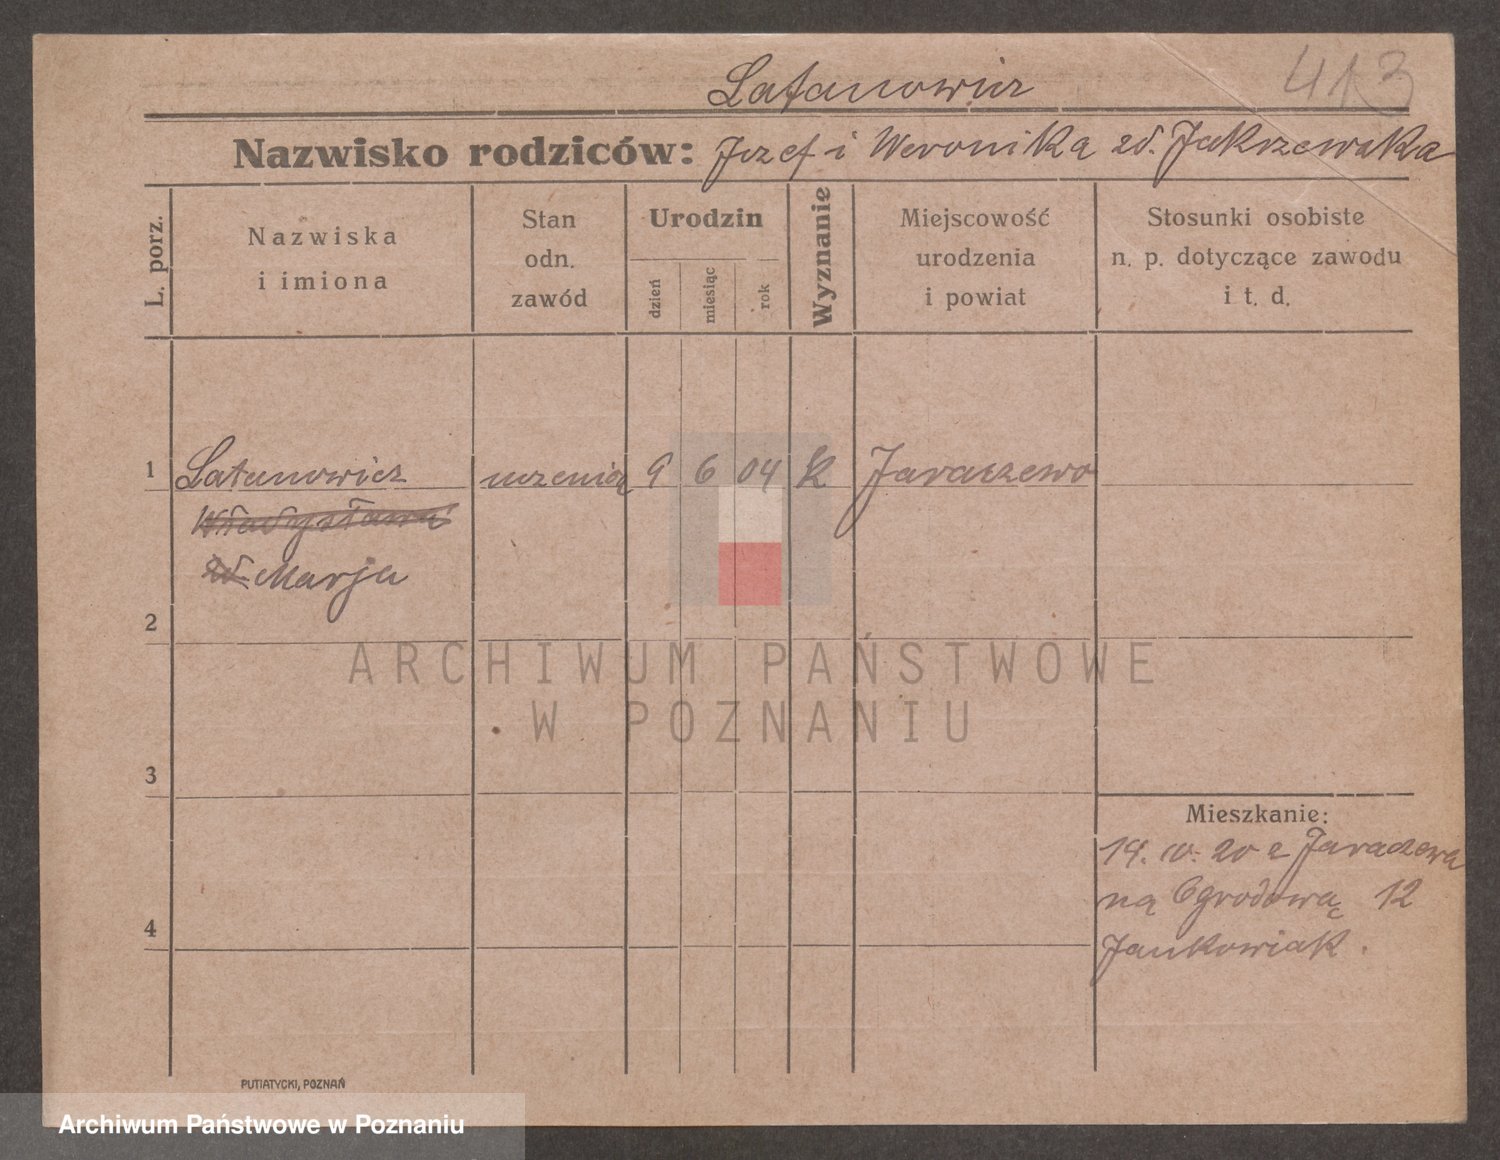 413
Latanowicz
Nazwisko rodziców: Jozef i Weronika zd.
L. porz.
Nazwiska
i imiona
Stan
odn.
zawód
Urodzin
dzień
miesiąc
rok
Wyznanie
Miejscowość
urodzenia
i powiat
Stosunki osobiste
n. p. dotyczące zawodu
i t. d.
1 Latanowicz 9 6 04 k Jaraczewo
Władysława
Marja
2
3
4
Mieszkanie:
20 z Jaraczewa
na Ogrodową 12
Jankowiak.
PUTIATYCKI, POZNAŃ
ARCHIWUM PAŃSTWOWE
W POZNANIU
Archiwum Państwowe w Poznaniu